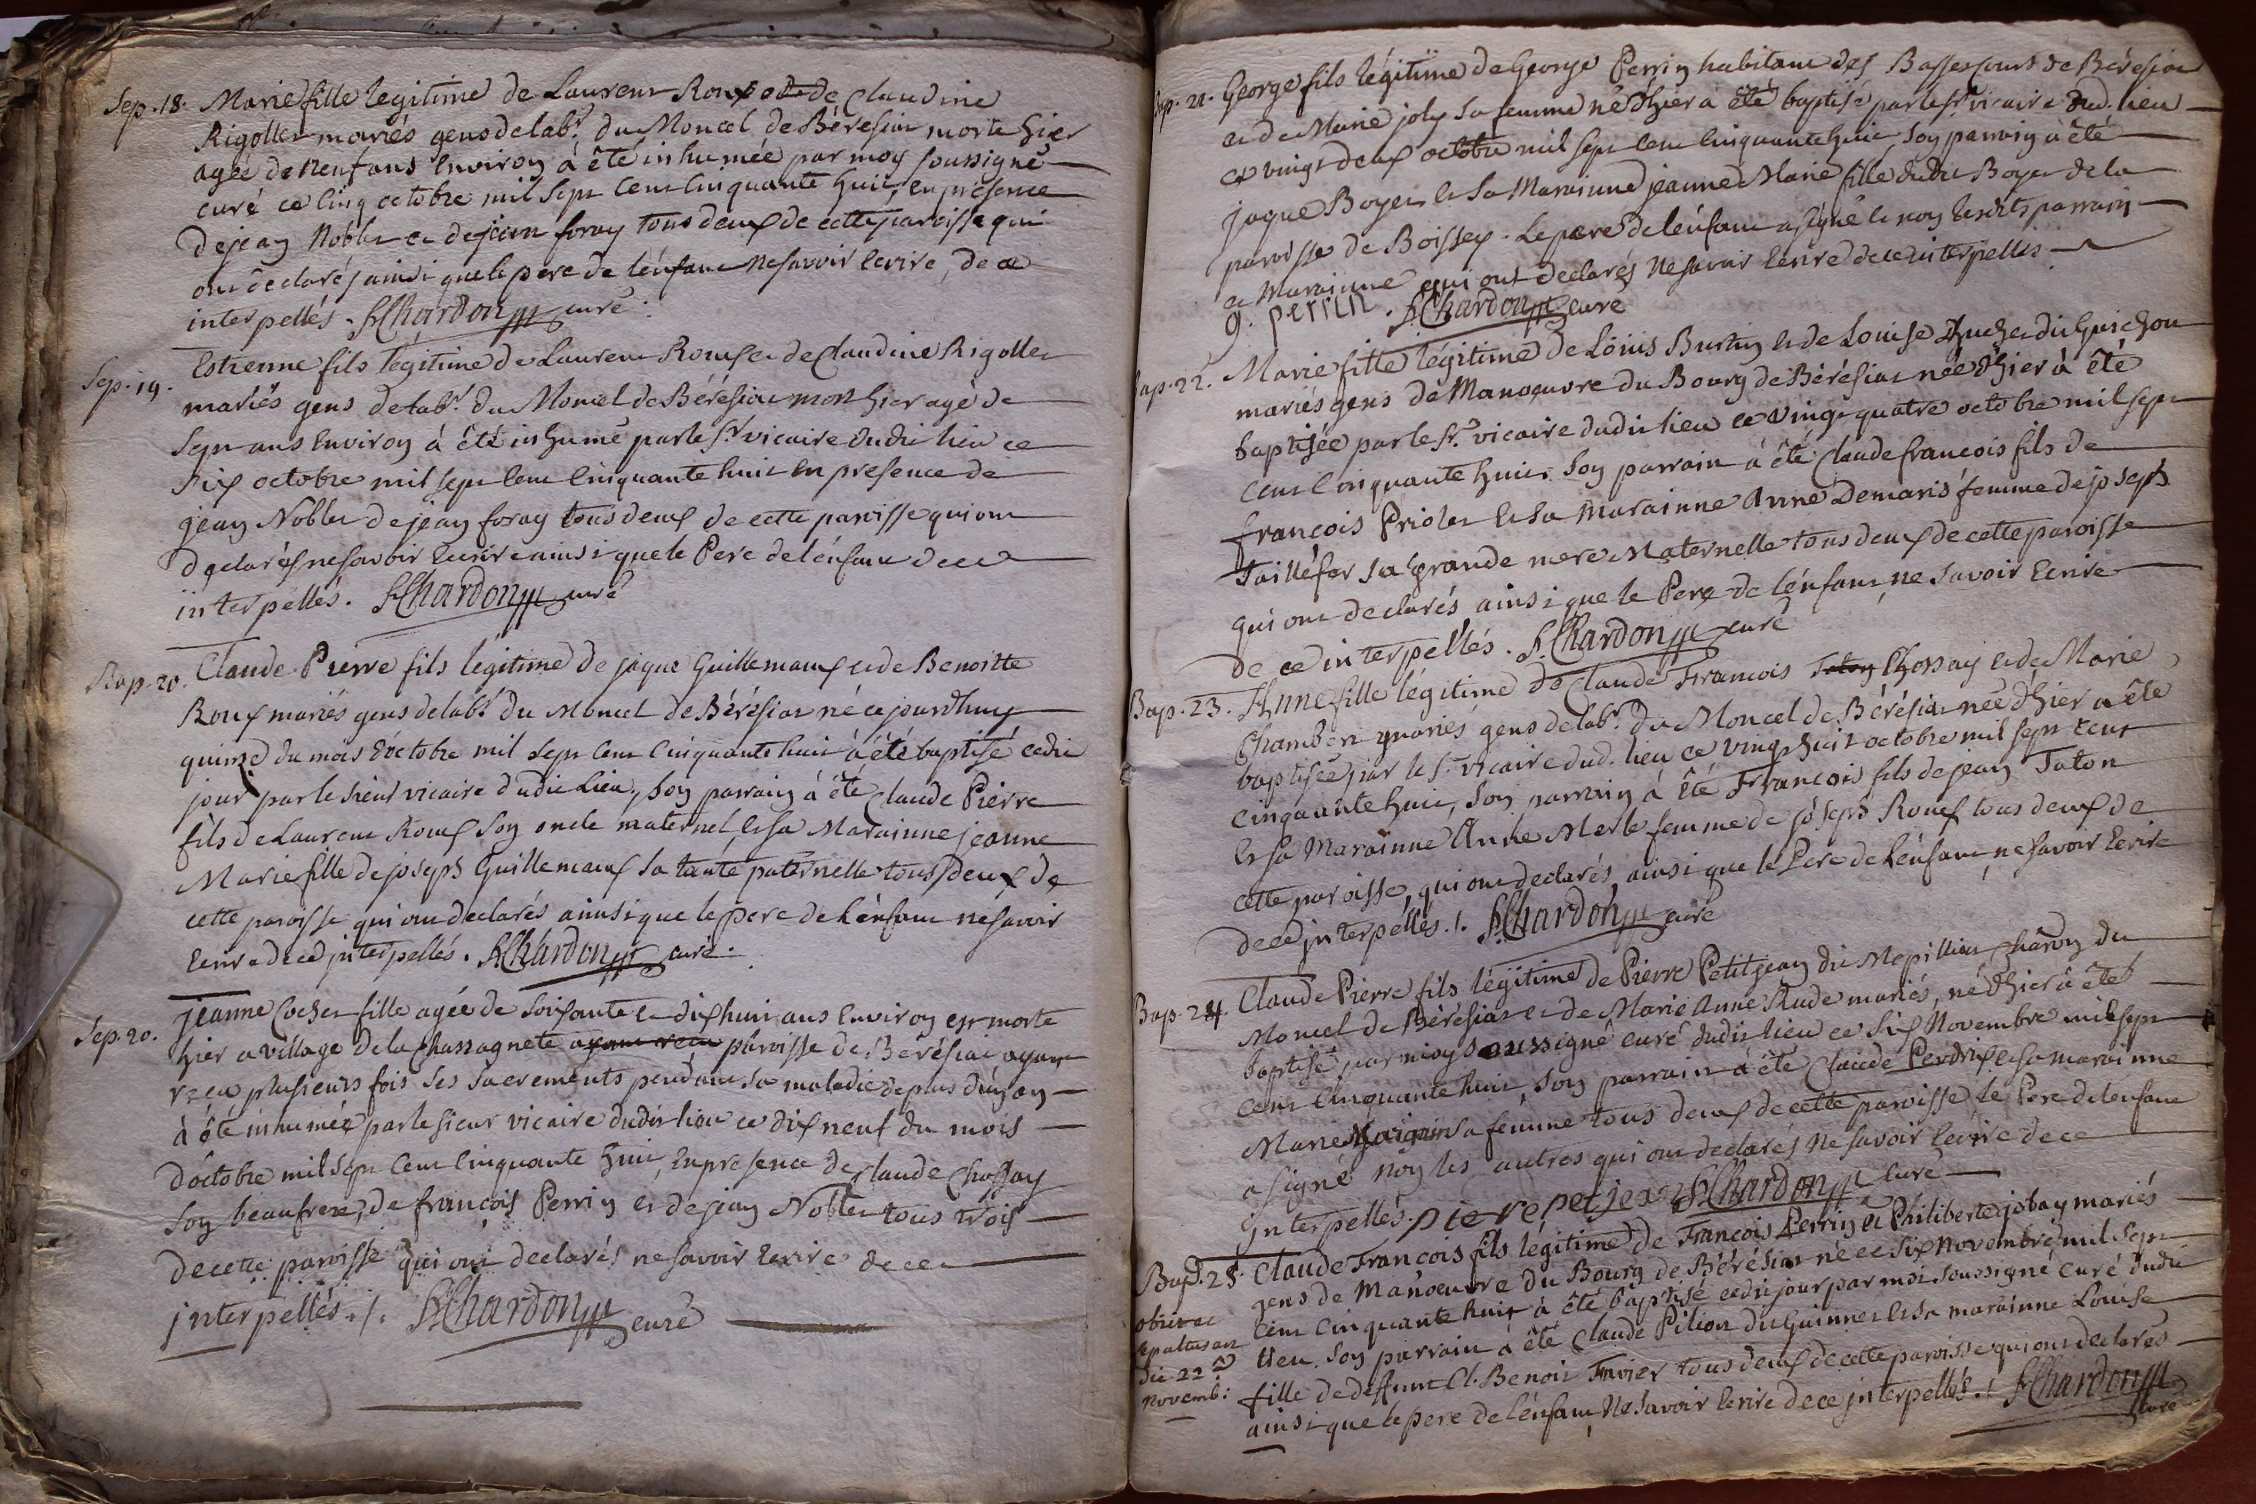 Sep. 18. Marie fille légitime de Laurent Roux et de Claudine
Rigollet mariés gens de labr. du Moncel de Béréziat morte hier
agée de neuf ans environ à été inhumée par moy soussigné
curé ce cinq octobre mil sept cent cinquante huit, en présence
de jean Noblet et de jean foray tous deux de cette paroisse qui
ont déclarés ainsi que le pere de l'énfant ne savoir écrire, de ce
interpellés. Chardon curé.
Sep. 19. Estienne fils légitime de Laurent Roux et de Claudine Rigollet
mariés gens de labr. du Moncel de Béréziat mort hier agé de
sept ans environ à été inhumé par le sr. vicaire dudit lieu ce
six octobre mil sept cent cinquante huit en presence de
jean Noblet de jean foray tous deux de cette paroisse qui ont
déclarés ne savoir écrire ainsi que le Pere de l'énfant de ce
interpellés. Chardon curé
Bap. 20. Claude Pierre fils légitime de jaque Guillemaux et de Benoitte
Roux mariés gens de labr. du Moncel de Béréziat né ce jourdhuy
quinze du mois d'octobre mil sept cent cinquante huit à été baptisé cedit
jour par le sieur vicaire dudit Lieu, son parrain à été Claude Pierre
fils de Laurent Roux son oncle maternel, et sa Marainne jeanne
Marie fille de joseph Guillemaux sa tante paternelle tous deux de
cette paroisse qui ont declarés ainsi que le pere de l'énfant ne savoir
écrire de ce interpellés. Chardon curé.
Sep. 20. jeanne Cochet fille agée de soixante et dix huit ans environ est morte
hier a village de la Chassagnete paroisse de Béréziat ayant
reçu plusieurs fois ses sacrements pendant sa maladie depuis d'un an
à été inhumée par le sieur vicaire dudit lieu ce dix neuf du mois
d'octobre mil sept cent cinquante huit, en presence de Claude Chossay
son beaufrere, de françois Perrin et de jean Noblet tous trois
de cette paroisse qui ont declarés ne savoir écrire de ce
interpellés ./. Chardon curé
Bap. 21. George fils légitime de George Perrin habitant des Basses cours de Béréziat
et de Marie joly sa femme né d'hier a été baptisé par le sr. vicaire dud. lieu
ce vingt deux octobre mil sept cent cinquante huit, son parrain à été
jaque Boyer et sa Marainne jeanne Marie fille dudit Boyer de la
paroisse de Boissey. Le pere de l'énfant a signé et non lesdits parrain
et Marainne qui ont declarés ne savoir écrire de ce interpellés.
g. perrin. Chardon curé
Bap. 22. Marie fille légitime de Loüis Burtin et de Louise Chuchet dit Guichon
mariés gens de Manoeuvre du Bourg de Béréziat née d'hier à été
baptisée par le sr. vicaire dudit lieu ce vingt quatre octobre mil sept
cent cinquante huit. son parrain à été Claude françois fils de
françois Priolet et sa marainne Anne Demaris femme de joseph
Tailléfer sa grande mere Maternelle tous deux de cette paroisse
qui ont declarés ainsi que le Pere de l'énfant ne savoir écrire
de ce interpellés. Chardon curé
Bap. 23. Anne fille légitime de Claude François Chossay et de Marie
Chambéri mariés gens de labr. du Moncel de Béréziat née d'hier a été
baptisée par le sr. vicaire dud. lieu ce vingt huit octobre mil sept cent
cinquante huit, son parrain à été François fils de jean Taton
et sa Marainne Anne Merle femme de joseph Roux tous deux de
cette paroisse, qui ont declarés ainsi que le Pere de l'énfant ne savoir écrire
de ce interpellés ./. Chardon curé
Bap. 24. Claude Pierre fils légitime de Pierre Petitjean dit Mepilliat charon du
Moncel de Béréziat et de Marie Anne Rude mariés, né d'hier à été
baptisé par moy soussigné curé dudit lieu ce six Novembre mil sept
cent cinquante huit, son parrain à été Claude Perdrix et sa marainne
Marie sa femme tous deux de cette paroisse, le Pere de l'enfant
a signé non les autres qui ont declarés ne savoir écrire de ce
interpellés. piere petjean Chardon curé
Bap. 25. Claude François fils légitime de François Perrin et Philiberte jobay mariés
gens de Manoeuvre du Bourg de Béréziat né ce six Novembre mil sept
cent cinquante huit à été baptisé cedit jour par moi soussigné curé dudit
lieu. son parrain à été Claude Pilion dit Guinnet et sa marainne Louise
fille de deffunt Cl. Benoit Favier tous deux de cette paroisse qui ont declarés
ainsi que le pere de l'énfant ne savoir écrire de ce interpellés ./. Chardon
curé
obiit ac
sepultus est
die 22a
novemb: